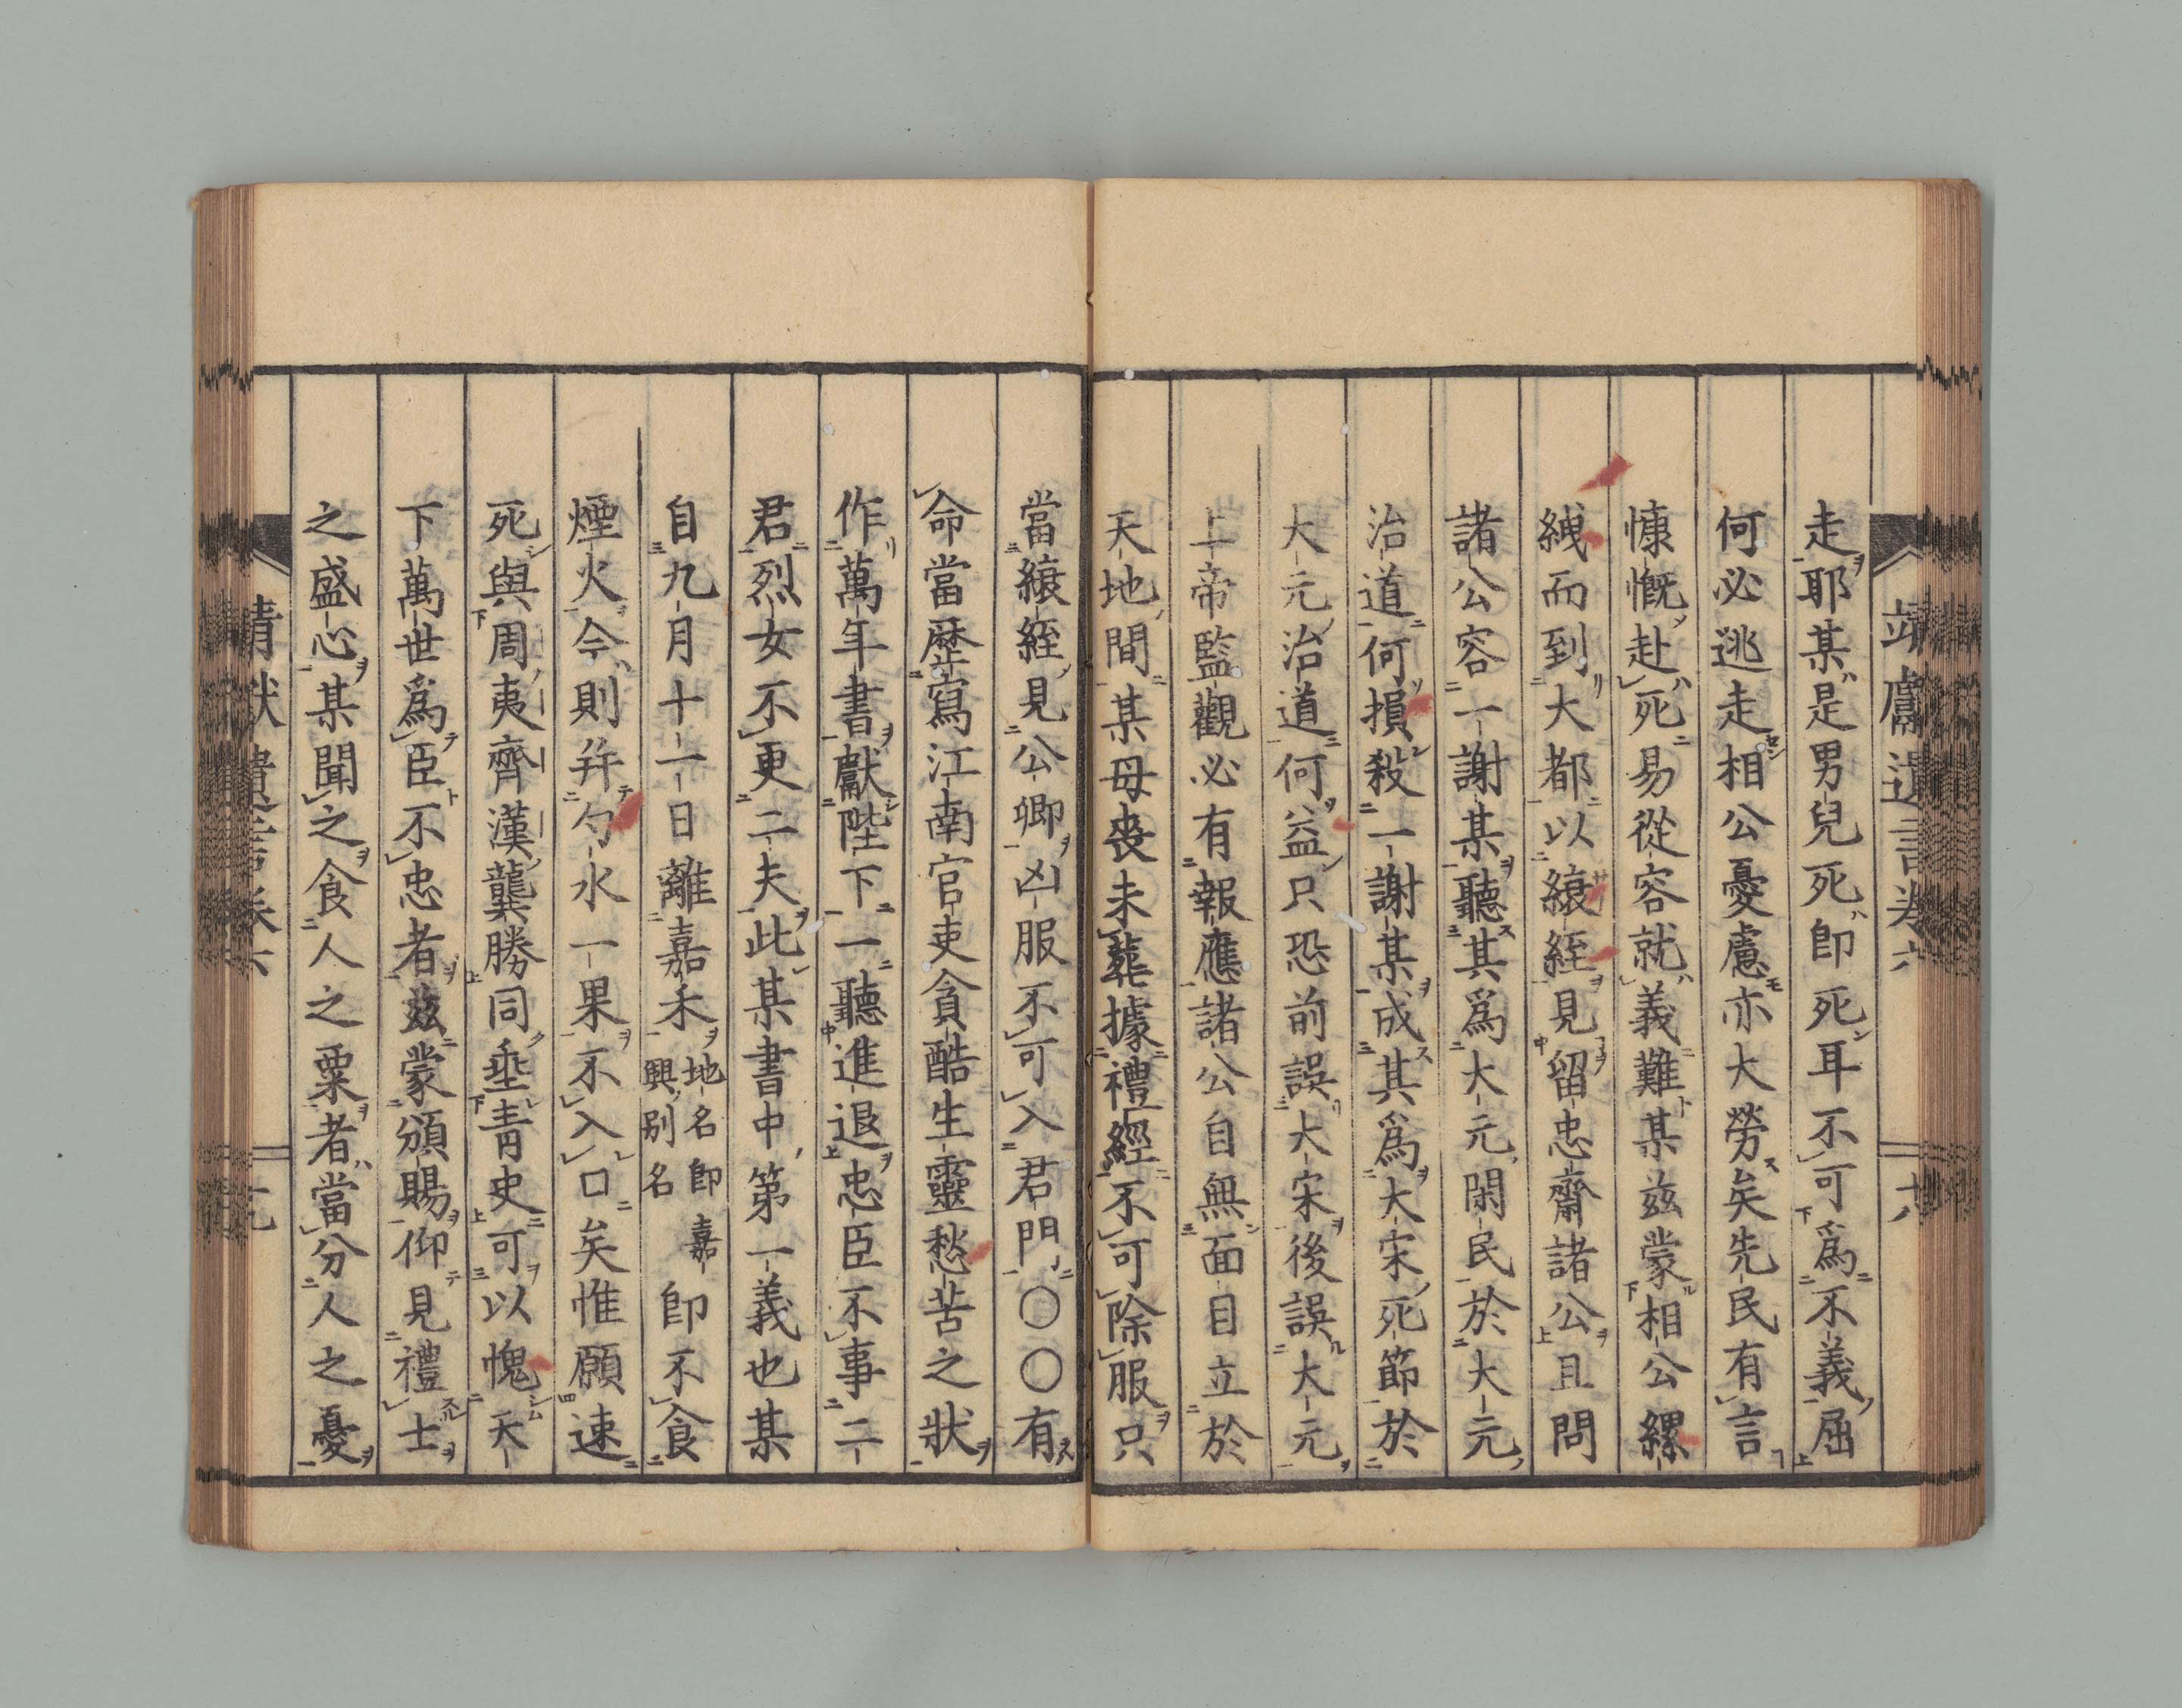 靖獻遺言卷六
十八
走耶某是男兒死卽死耳不可爲不義屈
何必逃走相公憂慮亦大勞矣先民有言
慷慨赴死易從容就義難某茲蒙相公縲
絏而到大都以縗絰見留忠齋諸公且問
諸公容一謝某聽其爲大元閑民於大元
治道何損殺一謝某成其爲大宋死節於
大元治道何益只恐前誤大宋後誤大元
上帝監觀必有報應諸公自無面目立於
天地間某母喪未葬據禮經不可除服只
當縗絰見公卿凶服不可入君門〇〇有
命當歷寫江南官吏貪酷生靈愁苦之狀
作萬年書獻陛下一聽進退忠臣不事二
君烈女不更二夫此某書中第一義也某
自九月十一日離嘉禾地名卽嘉興別名卽不食
煙火今則幷勺水一果不入口矣惟願速
死與周夷齊漢龔勝同垂靑史可以愧天
下萬世爲臣不忠者茲蒙頒賜仰見禮士
之盛心某聞之食人之粟者當分人之憂